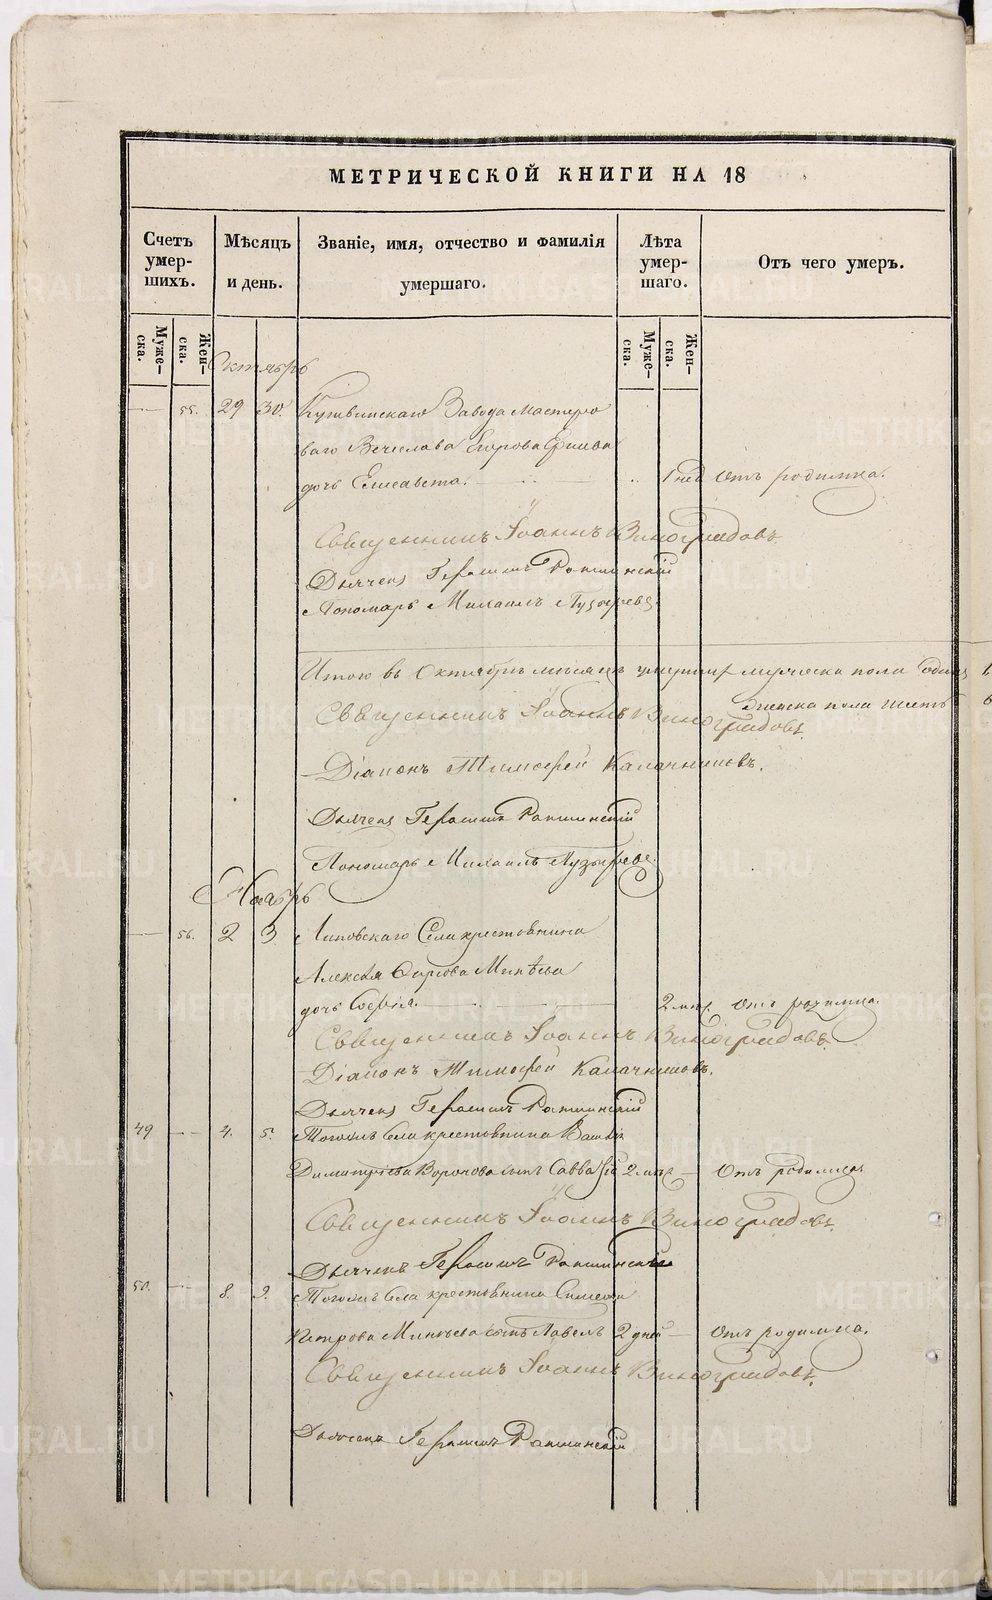 МЕТРИЧЕСКОЙ КНИГИ НА 18
Счетъ умер-шихъ.
Мѣсяцъ и день.
Званіе, имя, отчество и фамилія умершаго.
Лѣта умер-шаго.
Отъ чего умеръ.
Муже-ска.
Жен-ска.
Муже-ска.
Жен-ска.
Октябрь
55. 29 30. Завода Мастеро
ваго Вечеслава Егорова
дочь Елисавета. 1 нед Отъ родимца.
Священникъ Іоаннъ Виноградовъ
Дьячекъ Герасимъ
Пономарь Михаилъ Пузыревъ
Итого въ Октябрѣ мѣсяцѣ умерших мужеска пола одинъ 1
женска пола шесть 6
Священникъ Іоаннъ Виноградовъ
Діаконъ Тимофей Калачниковъ.
Дьячекъ Герасимъ
Пономарь Михаилъ Пузыревъ
Ноябрь
56. 2 3 Липовскаго Села крестьянина
Алексѣя Минѣева
дочь Софія. 2 мѣс. Отъ родимца.
Священникъ Іоаннъ Виноградовъ
Діаконъ Тимофей Калачниковъ.
Дьячекъ Герасимъ
49 4. 5. Тогожъ Села крестьянина
Димитріева сынъ Савва 2 мѣс Отъ родимца
Священникъ Іоаннъ Виноградовъ
Дьячекъ Герасимъ
50. 8. 9. Тогожъ Села крестьянина Симеона
Петрова Минѣева сынъ Павелъ 2 дней Отъ родимца.
Священникъ Іоаннъ Виноградовъ
Дьячекъ Герасимъ
METRIKI.GASO-URAL.RU